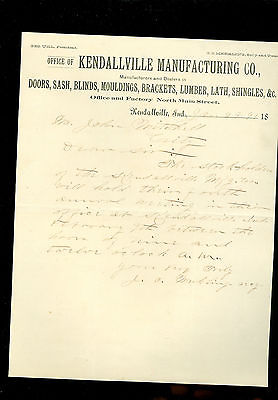 OFFICE OF KENDALLVILLE MANUFACTURING CO.,
Manufacturers and Dealers in
DOORS, SASH, BLINDS, MOULDINGS, BRACKETS, LUMBER, LATH, SHINGLES, &c.
Office and Factory North Main Street.
Kendallville, Ind., 18
Mr John Mitchell
City
Dear Sir
The stockholders
of the Kendallville Mfg Co
will hold their
annual meeting in their
office at Kendallville Ind
between the
hours of nine and
twelve o'clock a.m.
Yours
J.